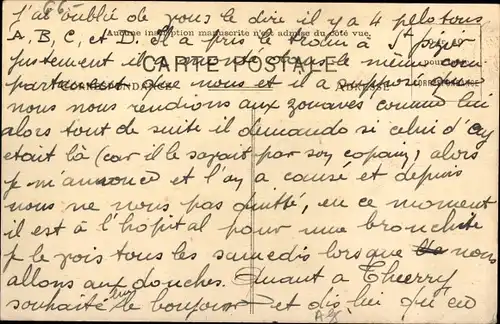 665
J'ai oublié de vous le dire il y a 4 pelotons
A, B, C, et D. Il a pris le train à St
Aucune inscription manuscrite n'est admise du côté vue.
justement il monté dans le même com
CARTE POSTALE
partiment que nous et il a supposé que
CORRESPONDANCE ADRESSE
nous nous rendions aux zouaves comme lui
alors tout de suite il demanda si celui d'
etait là (car il le savait par son copain) alors
je m'annonce et l'on a causé et depuis
nous ne nous pas quitté, en ce moment
il est à l'hôpital pour une bronchite
je le vois tous les samedis lorsque nous
allons aux douches. Quant à Theerry
souhaite lui le bonjour et dis lui qu'en